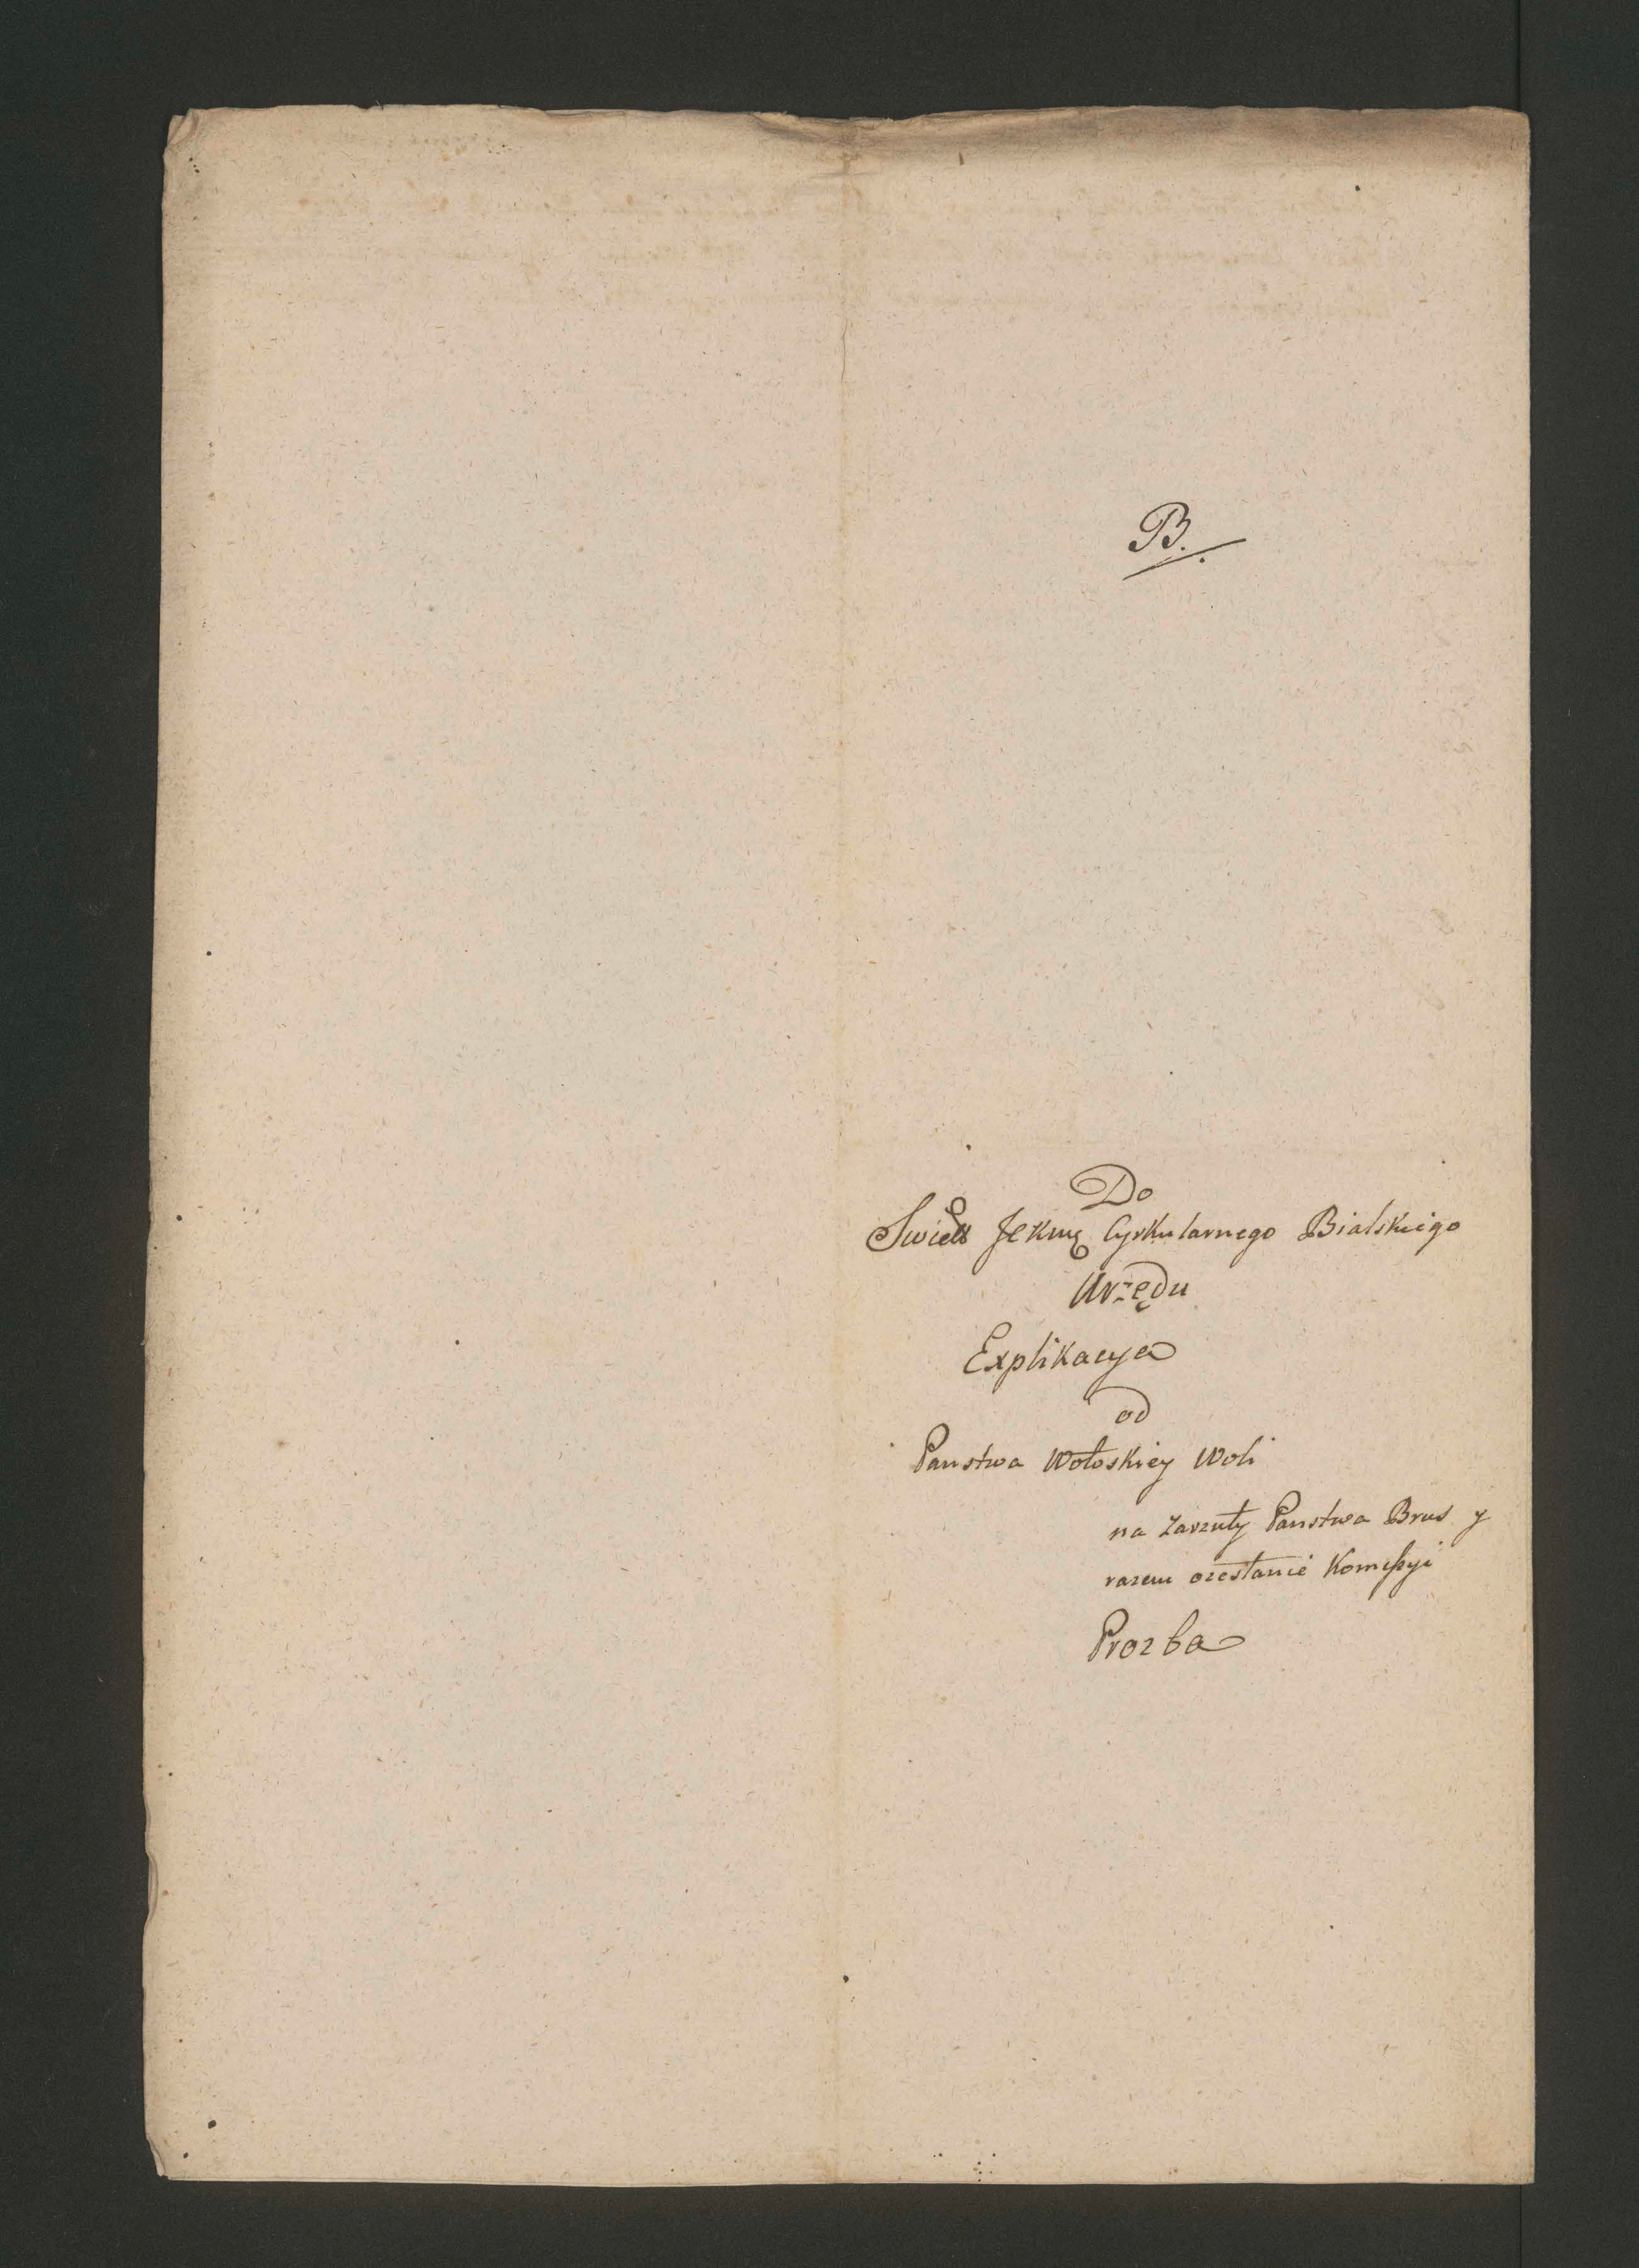 B.
Do
Swiett JeKmę Cyrkularnego Bialskiego
Urzędu
Explikacya
od
Panstwa Wołoskiey Woli
na Zarzuty Panstwa Brus y
razem ozesłanie Komißyi
Prozba